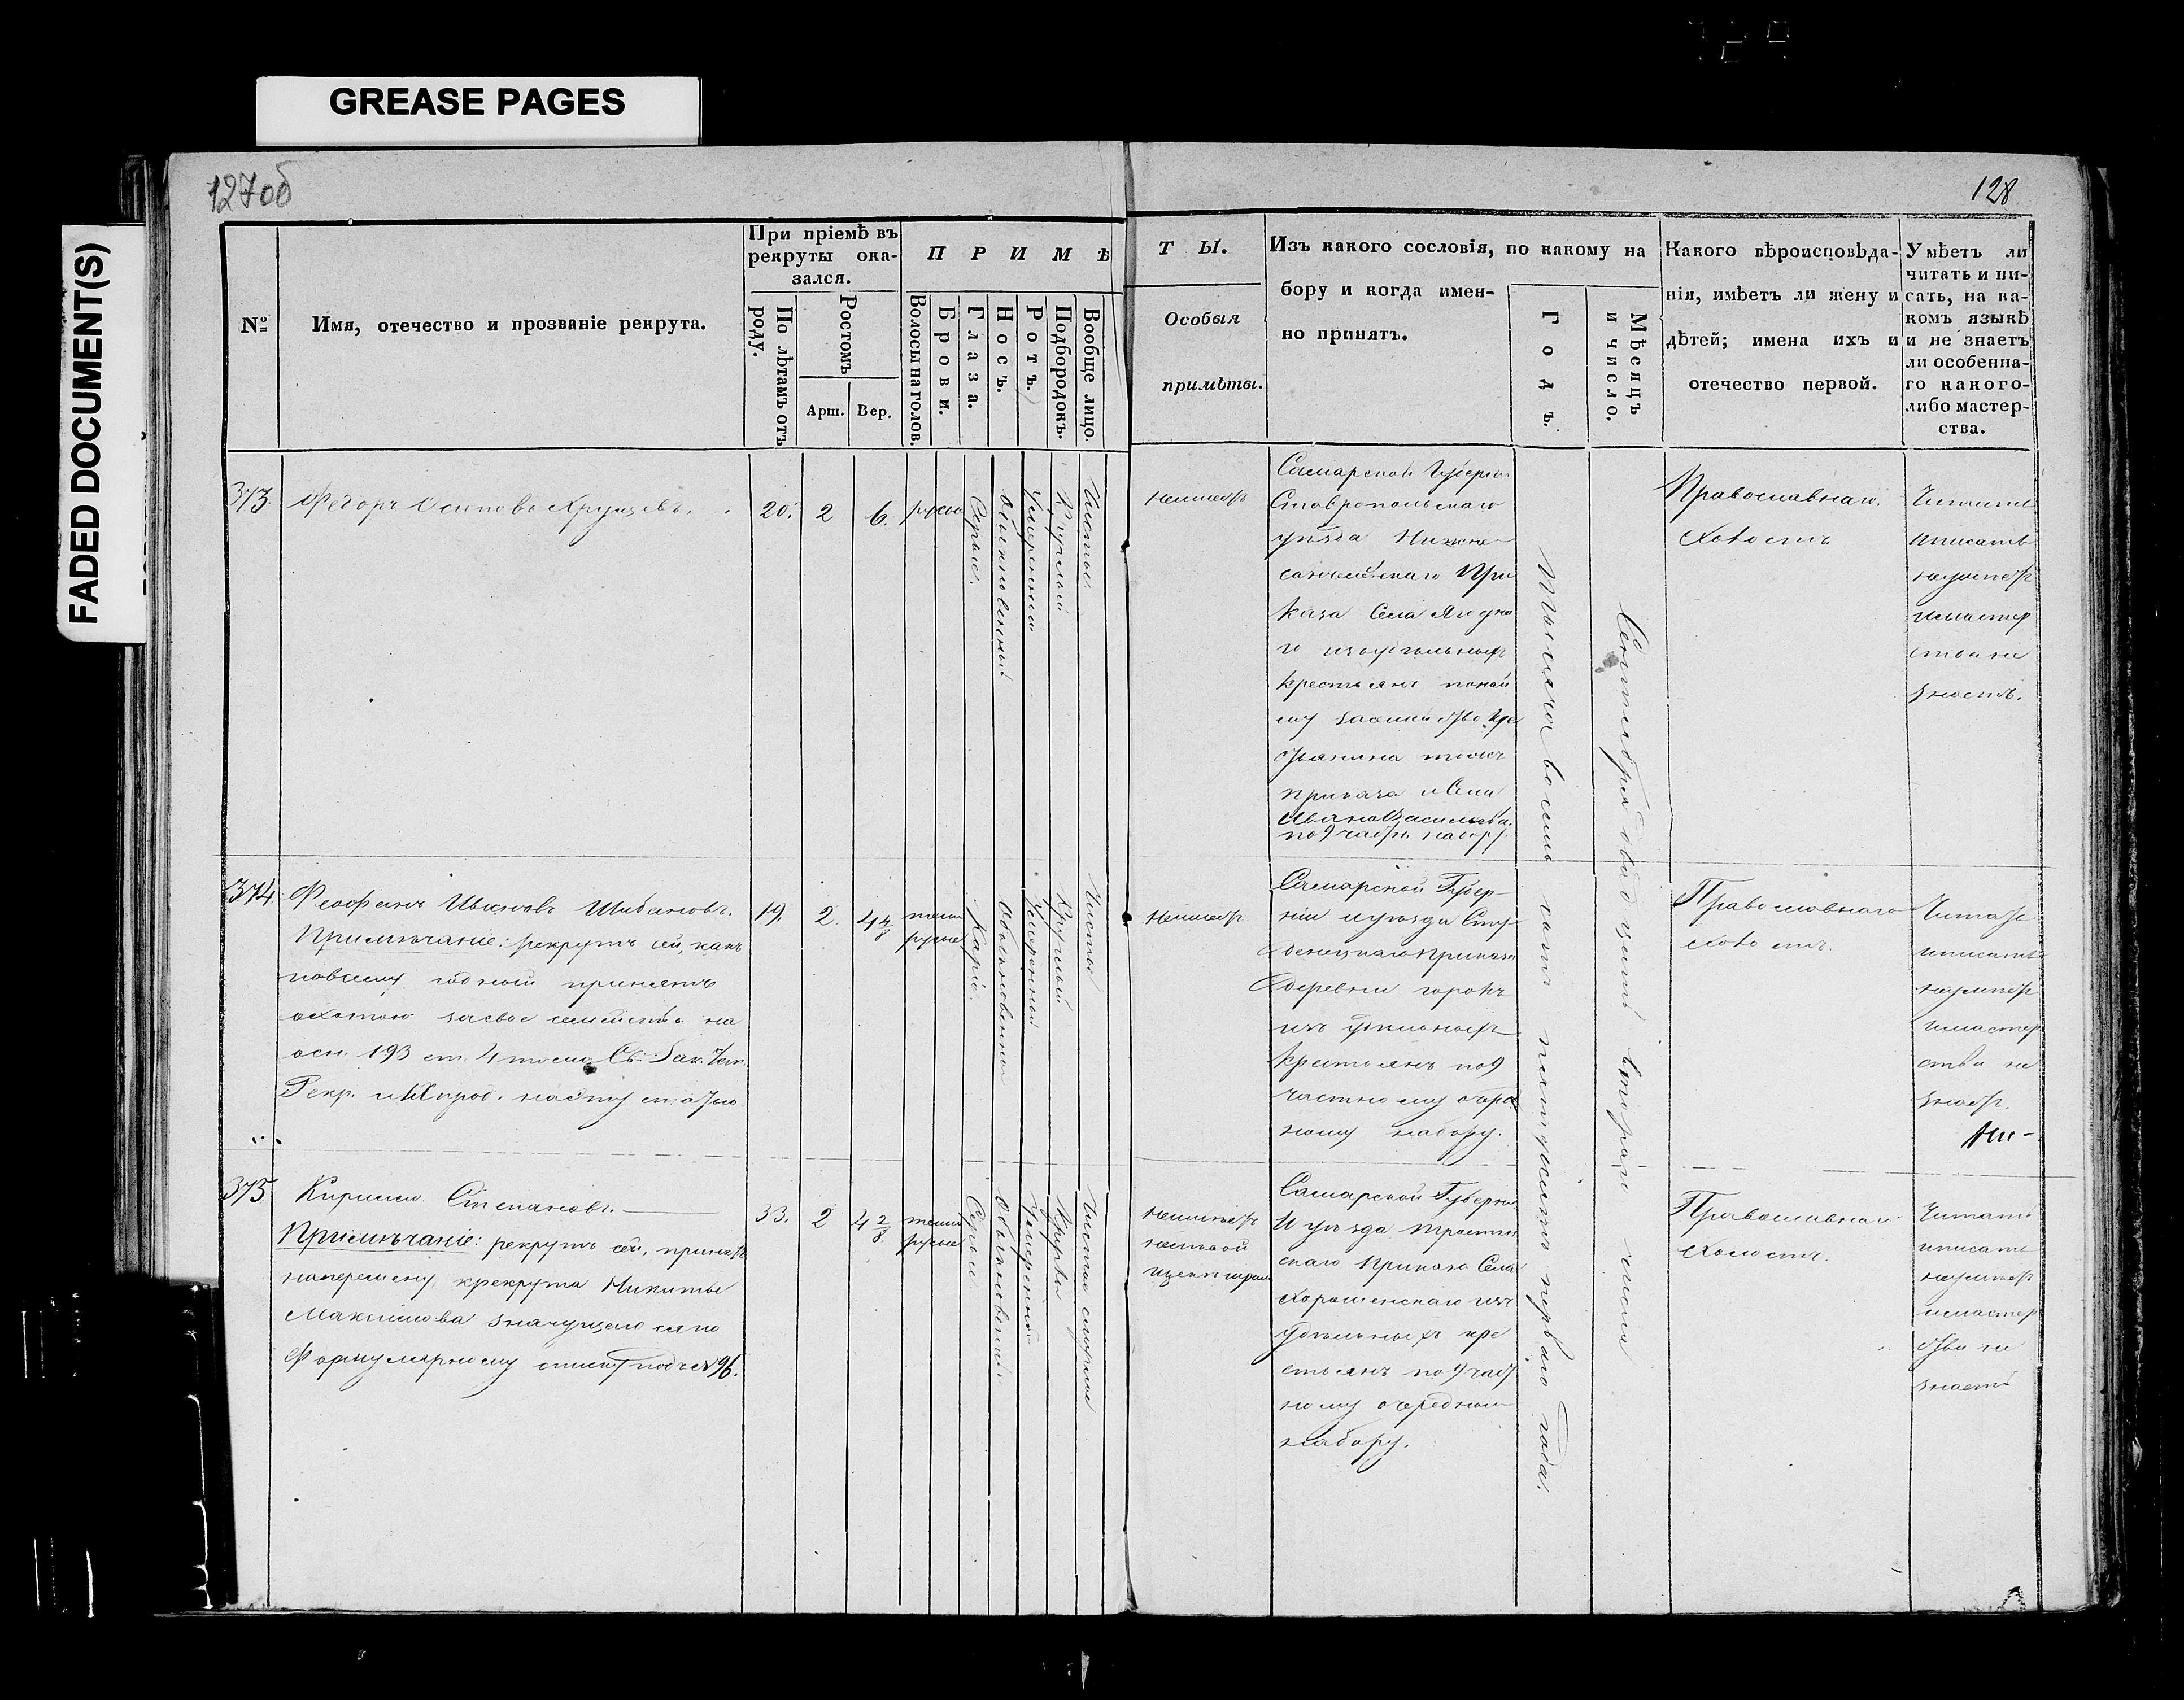 GREASE PAGES
FADED DOCUMENT(S)
127об
128
№
Имя, отечество и прозваніе рекрута.
При пріемѣ въ
рекруты ока-
зался.
По лѣтамъ отъ
роду.
Ростомъ
Арш.
Вер.
П Р И М Ѣ
Волосы на голов.
Брови.
Глаза.
Носъ.
Ротъ.
Подбородокъ.
Вообще лицо.
Т Ы.
Особыя
примѣты.
Изъ какого сословія, по какому на
бору и когда имен-
но принятъ.
Годъ.
Мѣсяцъ
и число.
Какого вѣроисповѣда-
нія, имѣетъ ли жену и
дѣтей; имена ихъ и
отечество первой.
Умѣетъ ли
читать и пи-
сать, на ка-
комъ языкѣ
и не знаетъ
ли особенна-
го какого-
либо мастер-
ства.
373.
Федоръ Осиповъ Хрущевъ.
20.
2
6.
русые
Серые.
Обыкновенный
Умеренный
Круглый
Чистое.
неимеетъ
Самарской Губерні
Ставропольскаго
уѣзда Нижне
санчелѣевскаго При
каза Села Ягодна
го изъ удельныхъ
крестьянъ по най
му за семейство кре
стьянина того же
приказа и Села
Ивана Васильева.
по 9 частн. набору
Тысяча восемь сотъ пятдесятъ перваго года.
Сентября двадцать втораго числа
Православнаго.
Холостъ
Читать
иписать
неумеетъ
имастер
ства не
знаетъ.
374
Феофанъ Ивановъ Шибановъ.
Примѣчаніе: рекрутъ сей, какъ
повсему годный принятъ
охотою засвое семейство на
осн. 193 ст. 4 тома Св. Зак. Уст.
Рекр. и XI прод. на эту статью
19.
2.
4 4/8
темно
русые
Каріе.
Обыкновенный
Умеренной
Круглый
Чистое
Неимеетъ
Самарской Губер-
ніи и уезда Сту
денецкаго приказа
деревни горокъ
изъ удельныхъ
Крестьянъ по 9
частному очеред
ному набору.
Православнаго
холостъ.
Читать
иписать
неумеетъ
имастер
ства не
знаетъ.
375
Кирило Степановъ.
Примѣчаніе: рекрутъ сей, принятъ
на перемену крекрута Никиты
Максимова значущегося по
Формулярному списку подъ № 96.
33.
2
4 2/8
темно
русые
Серые
Обыкновенный
Умеренный
Кругл
Чистое смуглое
неимеетъ
на левой
щеке шрам
Самарской Губерні
И уезда
скаго приказа Села
Хорошенскаго изъ
удельныхъ кре
стьянъ по 9 част
ному очередном
набору.
Православнаго
Холостъ.
Читать
иписать
неумеетъ
имастер
ства не
знаетъ